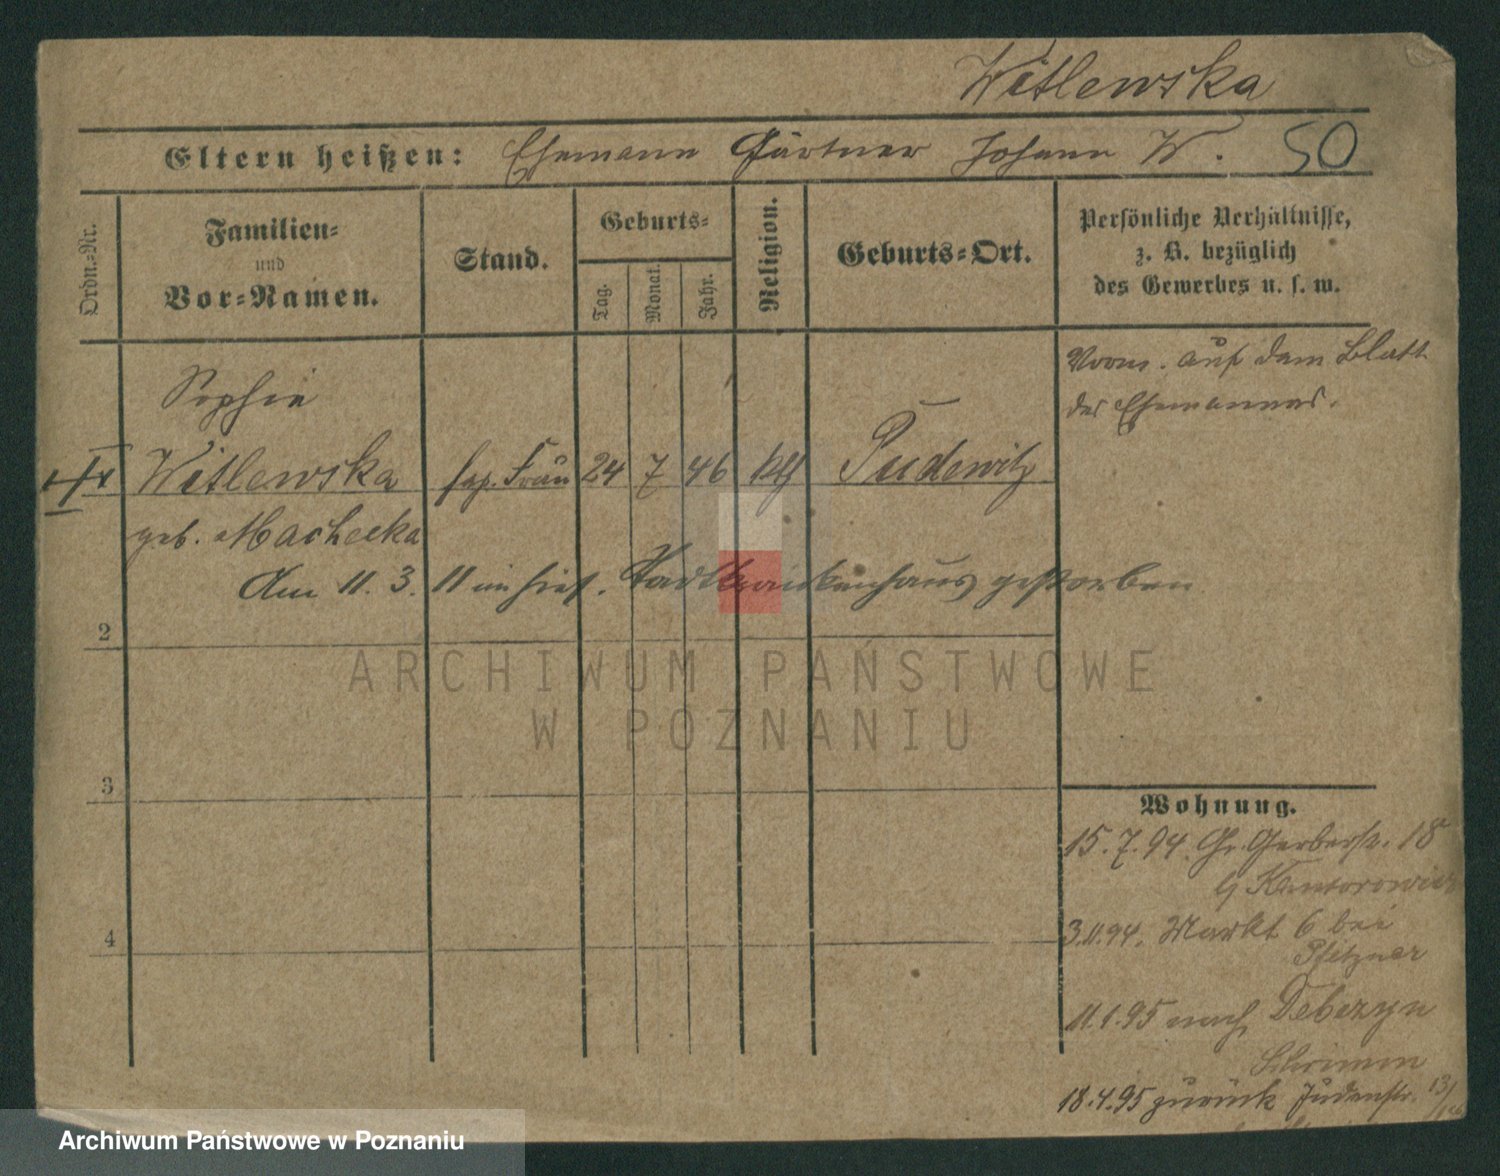 Witlewska
Eltern heißen: Ehemann Gärtner Johann W. 50
Ordn.-Nr.
Familien-
und
Vor-Namen.
Stand.
Geburts-
Tag.
Monat.
Jahr.
Religion.
Geburts-Ort.
Persönliche Verhältnisse,
z. B. bezüglich
des Gewerbes u. s. w.
Verm. auf dem Blatt
des Ehemannes.
Sophie
Witlewska sep. Frau 24 7 46 kth Pudewitz
geb. Machecka
Am 11. 3. 11 im hies. Stadtkrankenhaus gestorben
2
ARCHIWUM PAŃSTWOWE
W POZNANIU
3
4
Wohnung.
15. 7. 94. Gr. Gerberstr. 18
Kantorowicz
3.11.94. Markt 6 bei
Pfitzner
11.1.95 nach Debezyn
Schrimm
18.4.95 zurück Judenstr. 13/14
Archiwum Państwowe w Poznaniu